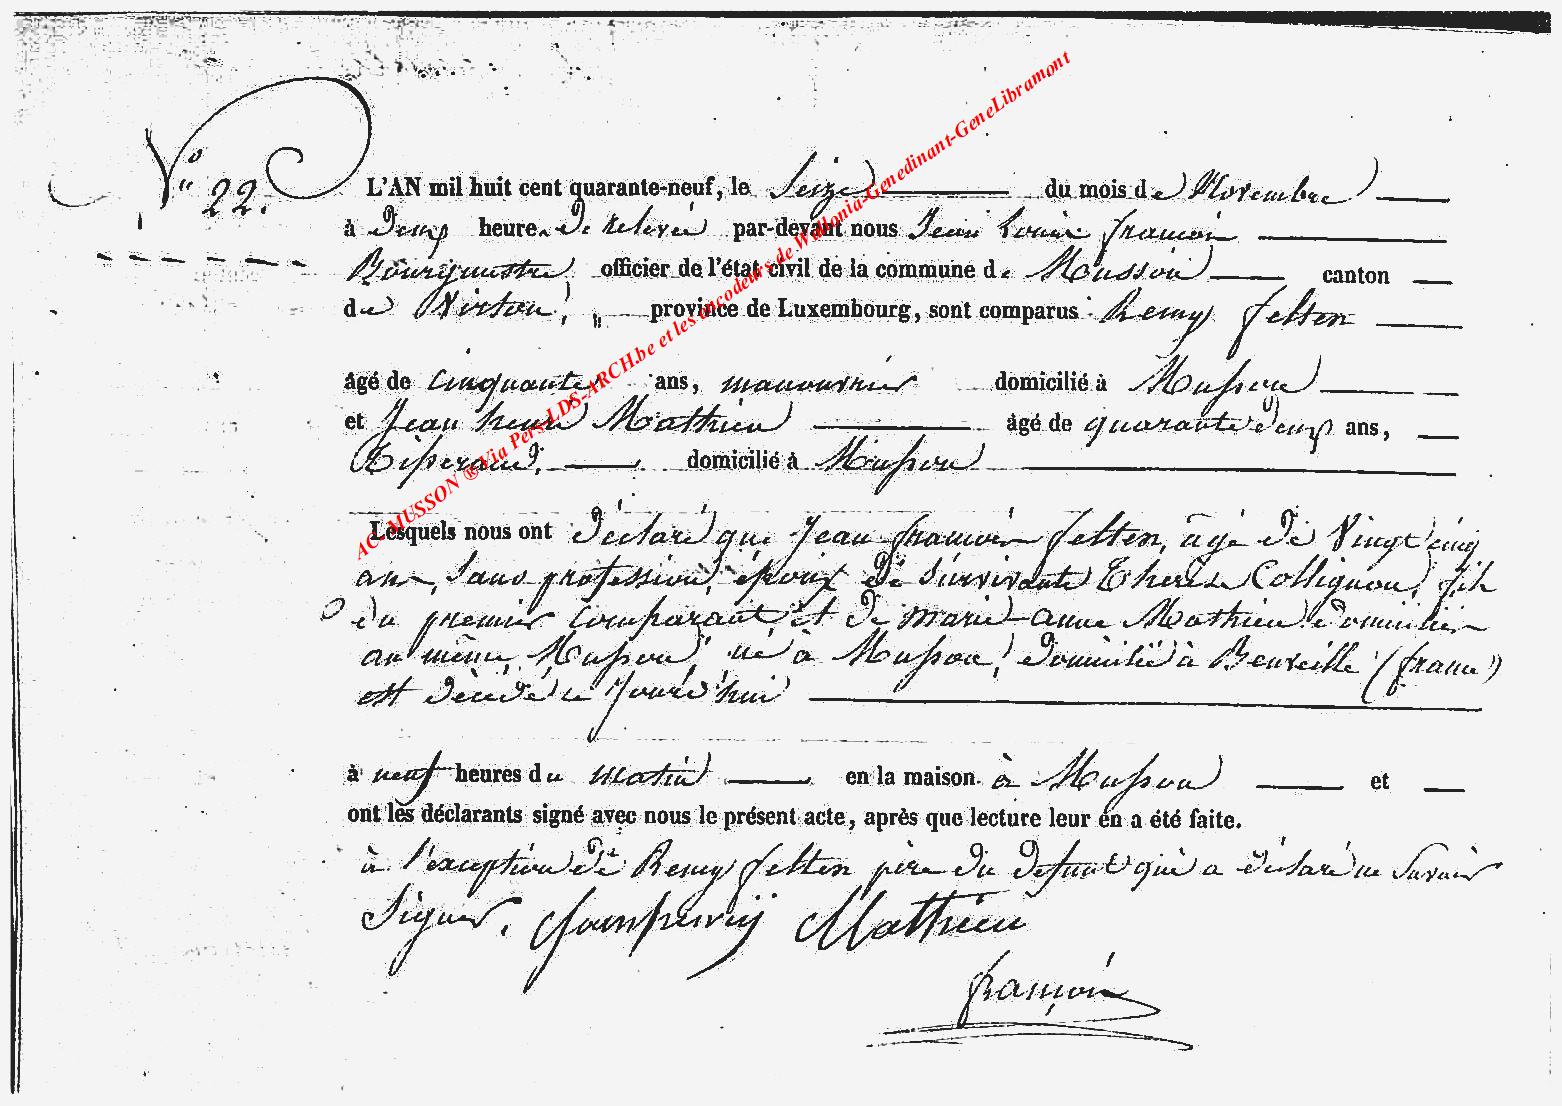 N° 22.
L'AN mil huit cent quarante-neuf, le Seize du mois de Novembre
à deux heure de relevée par-devant nous Jean Louis françois
Bourgmestre officier de l'état civil de la commune de Musson canton
de Virton, province de Luxembourg, sont comparus Remy felten
âgé de cinquante ans, manouvrier domicilié à Musson
et Jean henri Mathieu âgé de quarante deux ans,
Tisserand, domicilié à Musson
Lesquels nous ont déclaré que Jean françois felten, âgé de Vingt cinq
ans, Sans profession, époux de survivante Therese Collignon, fils
du premier comparant et de marie-anne Mathieu domiciliés
au même Musson, né à Musson, domicilié à Beuveille (france)
est décédé ce Jourd'hui
à neuf heures du matin en la maison à Musson et
ont les déclarants signé avec nous le présent acte, après que lecture leur en a été faite.
à l'exception de Remy felten père du defunt qui a déclaré ne Savoir
Signer. Jean henrij Mathieu
françois
AC MUSSON ® Via Pers.LDS-ARCH.be et les encodeurs de Wallonia-Genedinant-GeneLibramont